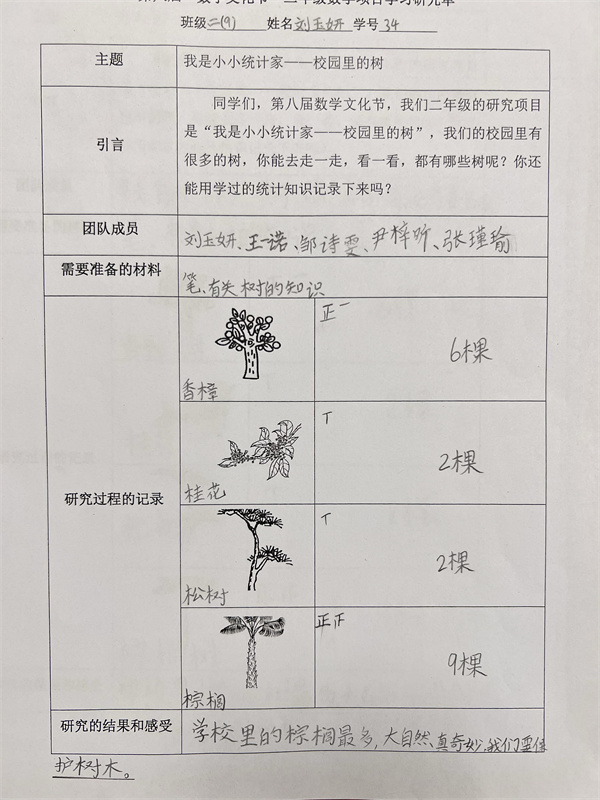 数学文化节 二年级数学项目学习研究单
班级二(9) 姓名刘玉妍 学号34
主题
我是小小统计家——校园里的树
引言
同学们，第八届数学文化节，我们二年级的研究项目
是“我是小小统计家——校园里的树”，我们的校园里有
很多的树，你能去走一走，看一看，都有哪些树呢？你还
能用学过的统计知识记录下来吗？
团队成员
刘玉妍、王一诺、邹诗雯、尹梓昕、张瑾瑜
需要准备的材料
笔、有关树的知识
研究过程的记录
香樟
正一
6棵
桂花
丅
2棵
松树
丅
2棵
棕榈
正正
9棵
研究的结果和感受
学校里的棕榈最多，大自然、真奇妙，我们要保
护树木。